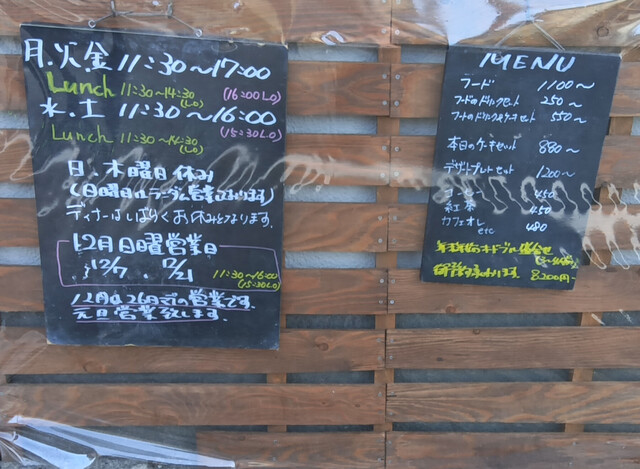 月.火.金 11:30〜17:00
Lunch 11:30〜14:30 (L.O) (16:00 L.O)
水.土 11:30〜16:00
Lunch 11:30〜14:30 (L.O) (15:30 L.O)
日.木曜日休み
(日曜日はランダム営業あります)
ディナーはしばらくお休みとなります.
12月日曜営業日
12/7. 12/21 11:30〜16:00
(15:30 L.O)
12月は26日までの営業です.
元旦営業致します.
MENU
フード 1100〜
フードのドリンクセット 250〜
フードのドリンク&ケーキセット 550〜
本日のケーキセット 880〜
デザートプレートセット 1200〜
コーヒー 450
紅茶 450
カフェオレ 480
etc
8200円〜